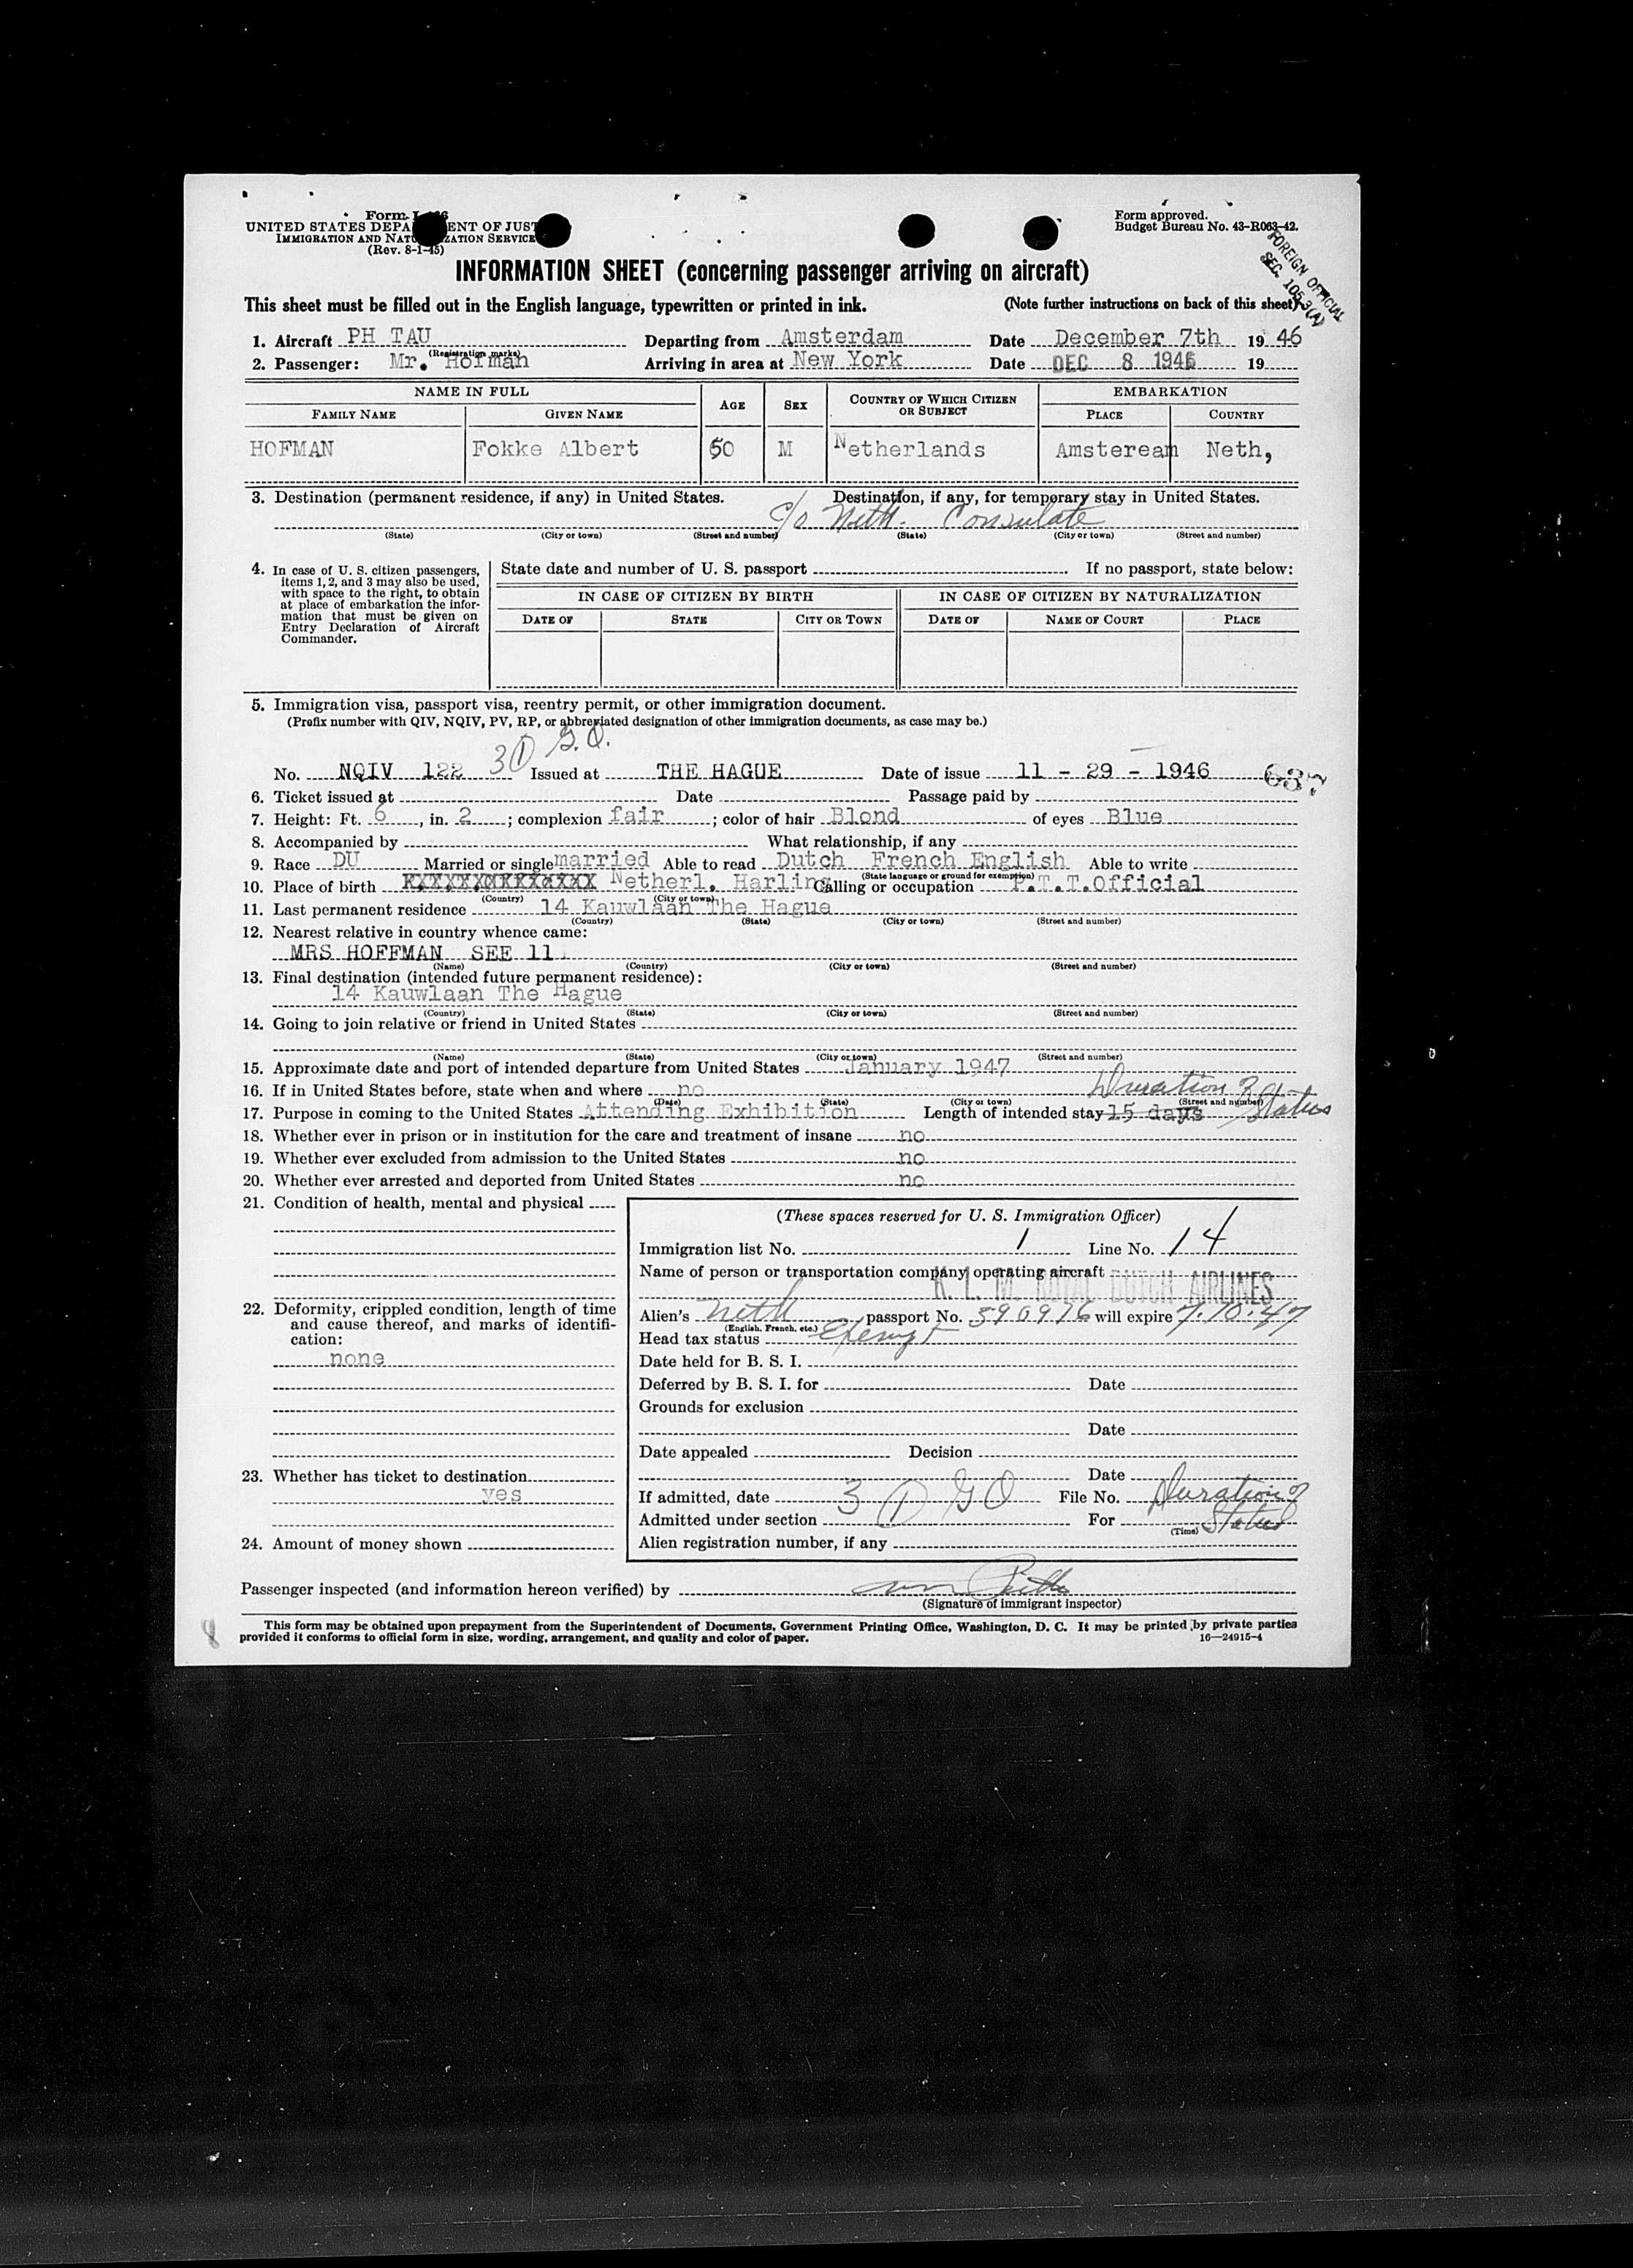 Form I- 6
UNITED STATES DEPA ENT OF JUST
IMMIGRATION AND NATU ZATION SERVICE
(Rev. 8-1-45)
Form approved.
Budget Bureau No. 43-R063-42.
FOREIGN OFFICIAL
SEC. 105.3(A)
INFORMATION SHEET (concerning passenger arriving on aircraft)
This sheet must be filled out in the English language, typewritten or printed in ink. (Note further instructions on back of this sheet)
1. Aircraft PH TAU Departing from Amsterdam Date December 7th 19 46
(Registration marks)
2. Passenger: Mr. Hofman Arriving in area at New York Date DEC 8 1946 19
NAME IN FULL AGE SEX COUNTRY OF WHICH CITIZEN OR SUBJECT EMBARKATION
FAMILY NAME GIVEN NAME PLACE COUNTRY
HOFMAN Fokke Albert 50 M Netherlands Amsteream Neth,
3. Destination (permanent residence, if any) in United States. Destination, if any, for temporary stay in United States.
c/o Neth. Consulate
(State) (City or town) (Street and number) (State) (City or town) (Street and number)
4. In case of U. S. citizen passengers, items 1, 2, and 3 may also be used, with space to the right, to obtain at place of embarkation the information that must be given on Entry Declaration of Aircraft Commander.
State date and number of U. S. passport If no passport, state below:
IN CASE OF CITIZEN BY BIRTH IN CASE OF CITIZEN BY NATURALIZATION
DATE OF STATE CITY OR TOWN DATE OF NAME OF COURT PLACE
5. Immigration visa, passport visa, reentry permit, or other immigration document.
(Prefix number with QIV, NQIV, PV, RP, or abbreviated designation of other immigration documents, as case may be.)
3(1) G.O.
No. NQIV 122 Issued at THE HAGUE Date of issue 11 - 29 - 1946 637
6. Ticket issued at Date Passage paid by
7. Height: Ft. 6, in. 2; complexion fair; color of hair Blond of eyes Blue
8. Accompanied by What relationship, if any
9. Race DU Married or single married Able to read Dutch French English Able to write
(State language or ground for exemption)
10. Place of birth Netherl. Harling Calling or occupation P.T.T.Official
(Country) (City or town)
11. Last permanent residence 14 Kauwlaan The Hague
(Country) (State) (City or town) (Street and number)
12. Nearest relative in country whence came:
MRS HOFFMAN SEE 11
(Name) (Country) (City or town) (Street and number)
13. Final destination (intended future permanent residence):
14 Kauwlaan The Hague
(Country) (State) (City or town) (Street and number)
14. Going to join relative or friend in United States
(Name) (State) (City or town) (Street and number)
15. Approximate date and port of intended departure from United States January 1947
16. If in United States before, state when and where no
(Date) (State) (City or town) (Street and number)
Duration of Status
17. Purpose in coming to the United States Attending Exhibition Length of intended stay 15 days
18. Whether ever in prison or in institution for the care and treatment of insane no
19. Whether ever excluded from admission to the United States no
20. Whether ever arrested and deported from United States no
21. Condition of health, mental and physical
22. Deformity, crippled condition, length of time and cause thereof, and marks of identification:
none
23. Whether has ticket to destination
yes
24. Amount of money shown
(These spaces reserved for U. S. Immigration Officer)
Immigration list No. 1 Line No. 14
Name of person or transportation company operating aircraft
K. L. M. ROYAL DUTCH AIRLINES
Alien's Neth passport No. 590976 will expire 7.10.47
(English, French, etc.)
Head tax status Exempt
Date held for B. S. I.
Deferred by B. S. I. for Date
Grounds for exclusion
Date
Date appealed Decision
Date
If admitted, date 3 (1) GO File No. Duration of
Admitted under section For Status
(Time)
Alien registration number, if any
Passenger inspected (and information hereon verified) by
(Signature of immigrant inspector)
This form may be obtained upon prepayment from the Superintendent of Documents, Government Printing Office, Washington, D. C. It may be printed by private parties
provided it conforms to official form in size, wording, arrangement, and quality and color of paper. 16—24915-4